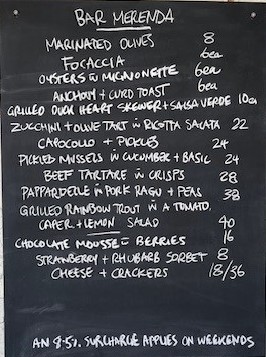 BAR MERENDA
MARINATED OLIVES 8
FOCACCIA 6ea
OYSTERS w MIGNONETTE 6ea
ANCHOVY + CURD TOAST 8ea
GRILLED DUCK HEART SKEWER + SALSA VERDE 10ea
ZUCCHINI + OLIVE TART w RICOTTA SALATA 22
CAPOCOLLO + PICKLES 24
PICKLED MUSSELS w CUCUMBER + BASIL 24
BEEF TARTARE w CRISPS 28
PAPPARDELLE w PORK RAGU + PEAS 38
GRILLED RAINBOW TROUT w A TOMATO,
CAPER + LEMON SALAD 40
CHOCOLATE MOUSSE w BERRIES 16
STRAWBERRY + RHUBARB SORBET 8
CHEESE + CRACKERS 18/36
AN 8.5% SURCHARGE APPLIES ON WEEKENDS